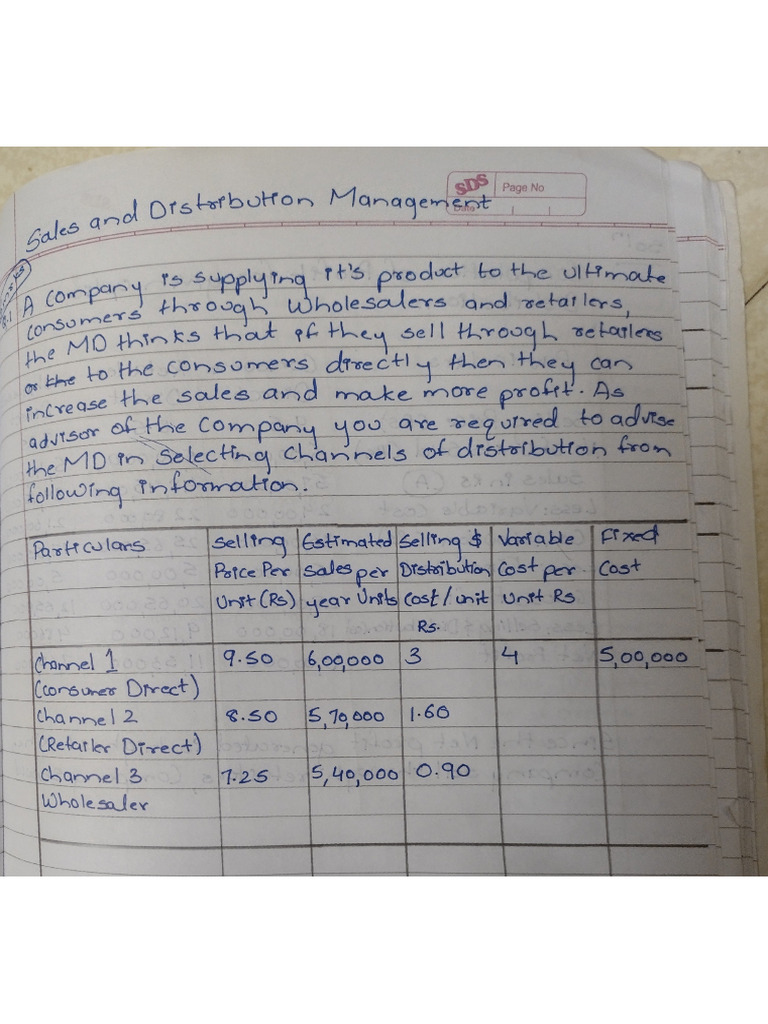 SDS Page No
Date
Sales and Distribution Management
A company is supplying it's product to the ultimate
consumers through wholesalers and retailers,
the MD thinks that if they sell through retailers
or the to the consumers directly then they can
increase the sales and make more profit. As
advisor of the company you are required to advise
the MD in selecting channels of distribution from
following information.
Particulars Selling Estimated Selling $ Variable Fixed
Price Per Sales per Distribution Cost per Cost
Unit (Rs) year Units Cost / unit Unit Rs
Rs.
Channel 1 9.50 6,00,000 3 4 5,00,000
(Consumer Direct)
Channel 2 8.50 5,70,000 1.60
(Retailer Direct)
Channel 3 7.25 5,40,000 0.90
Wholesaler